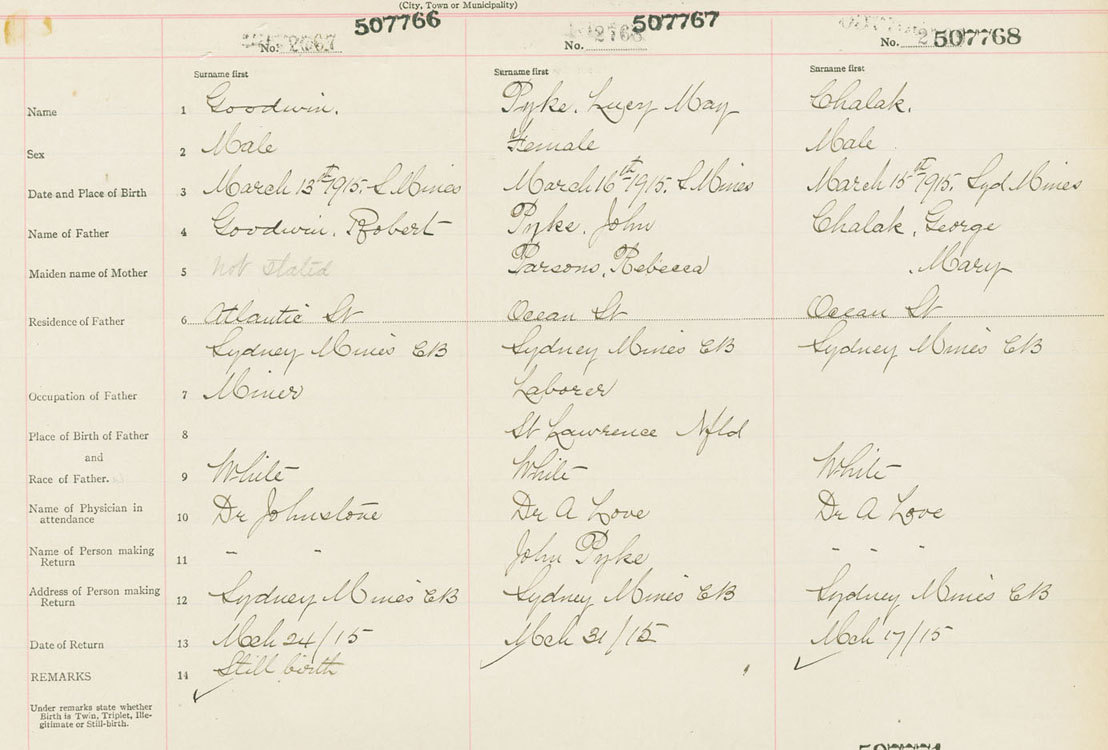 (City, Town or Municipality)
507766 507767 507768
No. 2767 No. 2768 No.
Surname first Surname first Surname first
Name 1 Goodwin. Pyke, Lucy May Chalak.
Sex 2 Male Female Male
Date and Place of Birth 3 March 13th 1915. S. Mines March 16th 1915. S. Mines March 15th 1915. Syd Mines
Name of Father 4 Goodwin, Robert Pyke, John Chalak, George
Maiden name of Mother 5 not stated Parsons, Rebecca , Mary
Residence of Father 6 Atlantic St Ocean St Ocean St
Sydney Mines CB Sydney Mines CB Sydney Mines CB
Occupation of Father 7 Miner Laborer
Place of Birth of Father 8 St Lawrence Nfld
and
Race of Father. 9 White White White
Name of Physician in attendance 10 Dr Johnstone Dr A Love Dr A Love
Name of Person making Return 11 - - John Pyke - - -
Address of Person making Return 12 Sydney Mines CB Sydney Mines CB Sydney Mines CB
Date of Return 13 Mch 24/15 Mch 31/15 Mch 17/15
REMARKS 14 Still birth
Under remarks state whether
Birth is Twin, Triplet, Ille-
gitimate or Still-birth.